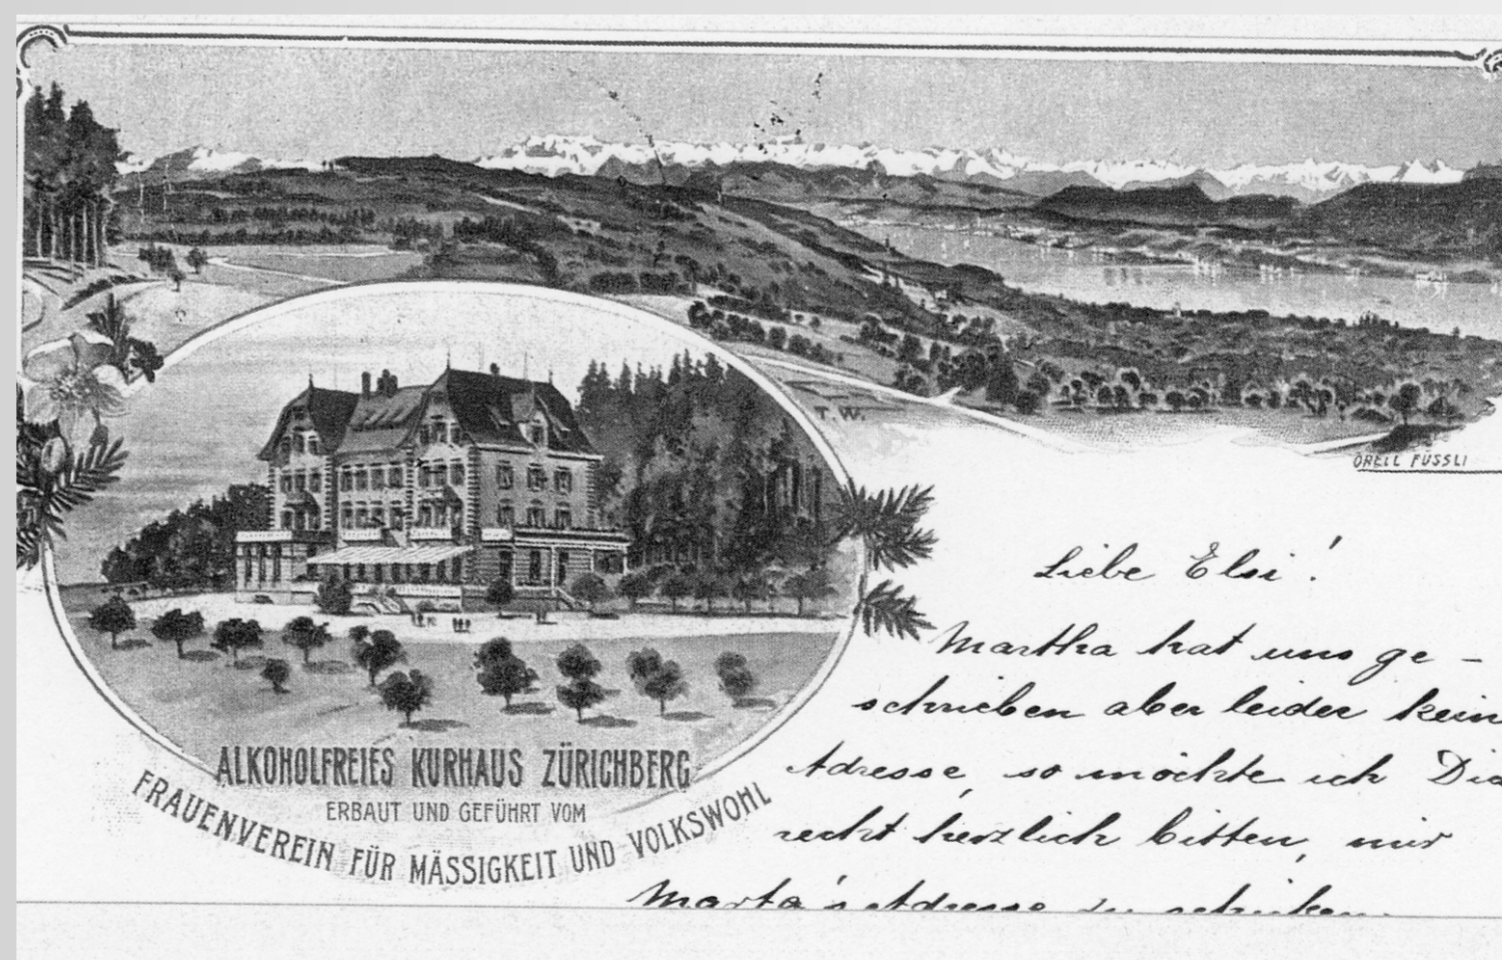 T.W.
ORELL FÜSSLI
ALKOHOLFREIES KURHAUS ZÜRICHBERG
ERBAUT UND GEFÜHRT VOM
FRAUENVEREIN FÜR MÄSSIGKEIT UND VOLKSWOHL
Liebe Elsi!
Martha hat uns ge-
schrieben aber leider kein
Adresse, so möchte ich Di
recht herzlich bitten, mir
Marta's Adresse zu schicken.